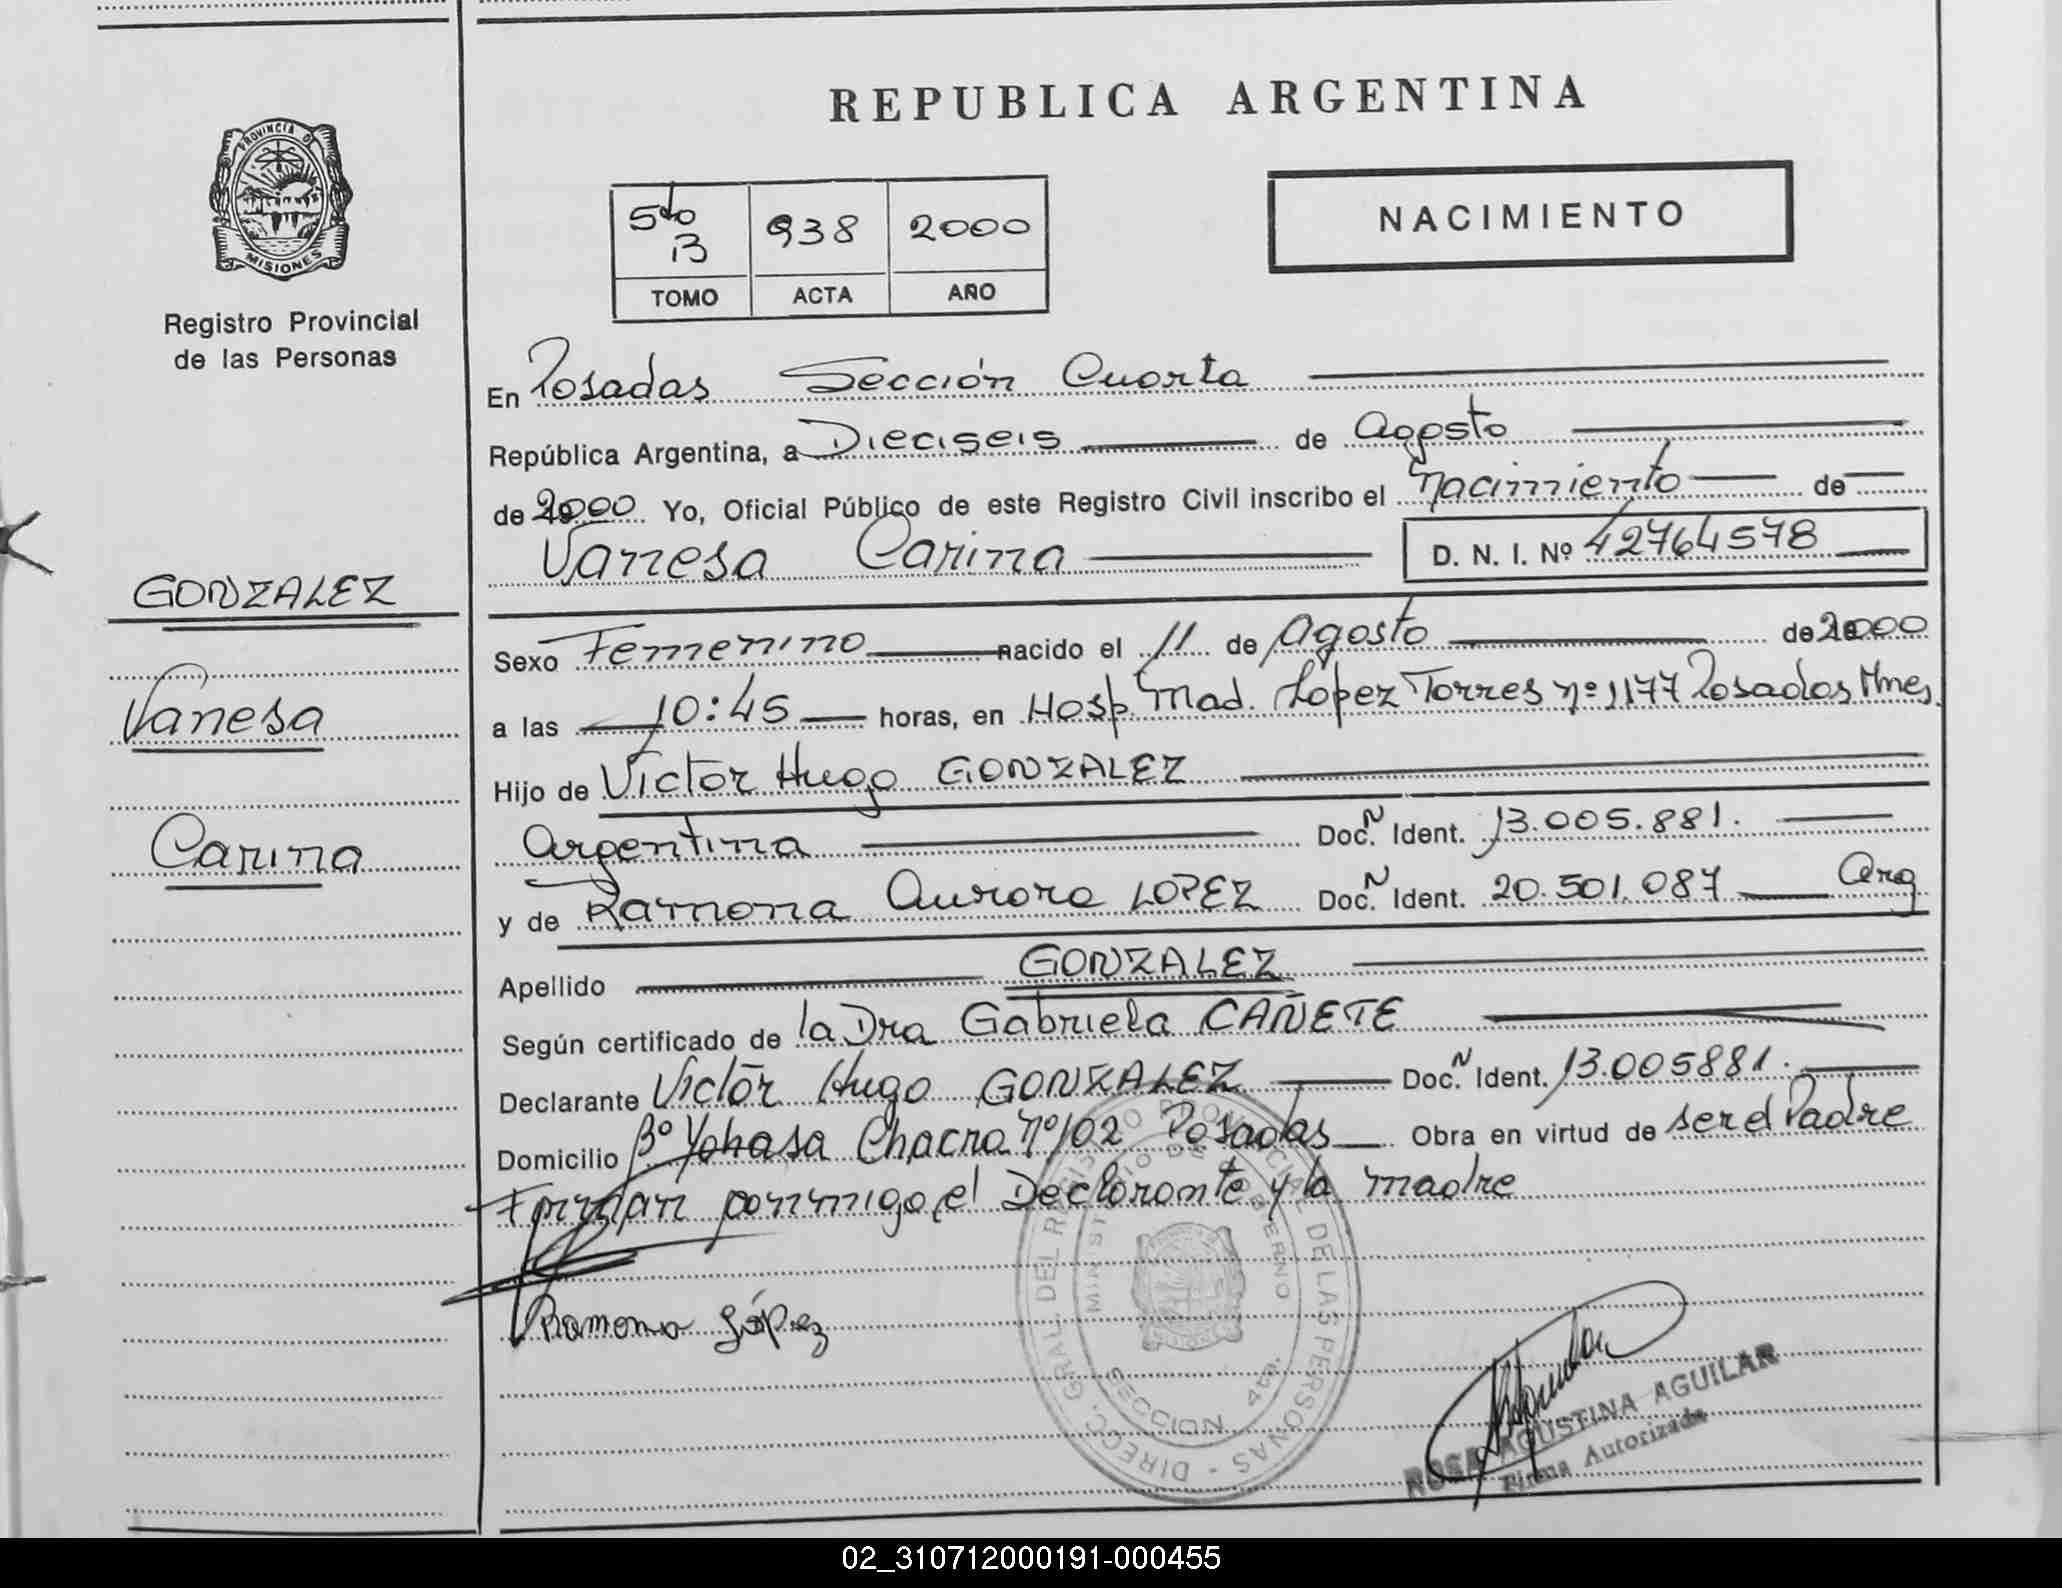 REPUBLICA ARGENTINA
PROVINCIA DE
MISIONES
Registro Provincial
de las Personas
5to B 938 2000
TOMO ACTA AÑO
NACIMIENTO
En Posadas Sección Cuarta
República Argentina, a Dieciseis de Agosto
de 2000 Yo, Oficial Público de este Registro Civil inscribo el nacimiento de
Vanesa Carina D. N. I. Nº 42764578
GONZALEZ
Vanesa
Carina
Sexo Femenino nacido el 11 de Agosto de 2000
a las 10:45 horas, en Hosp. Mad. Lopez Torres nº 1177 Posadas Mnes,
Hijo de Victor Hugo GONZALEZ
Argentina Doc. N Ident. 13.005.881.
y de Ramona Aurora LOPEZ Doc. N Ident. 20.501.087 Arg
Apellido GONZALEZ
Según certificado de la Dra Gabriela CAÑETE
Declarante Victor Hugo GONZALEZ Doc. N Ident. 13.005881.
Domicilio Bº Yohasa Chacra Nº 102 Posadas Obra en virtud de ser el Padre
Firman conmigo, el Declarante y la madre
Ramona López
DIRECC. GRAL. DEL REGISTRO PROVINCIAL DE LAS PERSONAS -
MINISTERIO DE GOBIERNO
SECCION 4ta.
ROSA AGUSTINA AGUILAR
Firma Autorizada
02_310712000191-000455